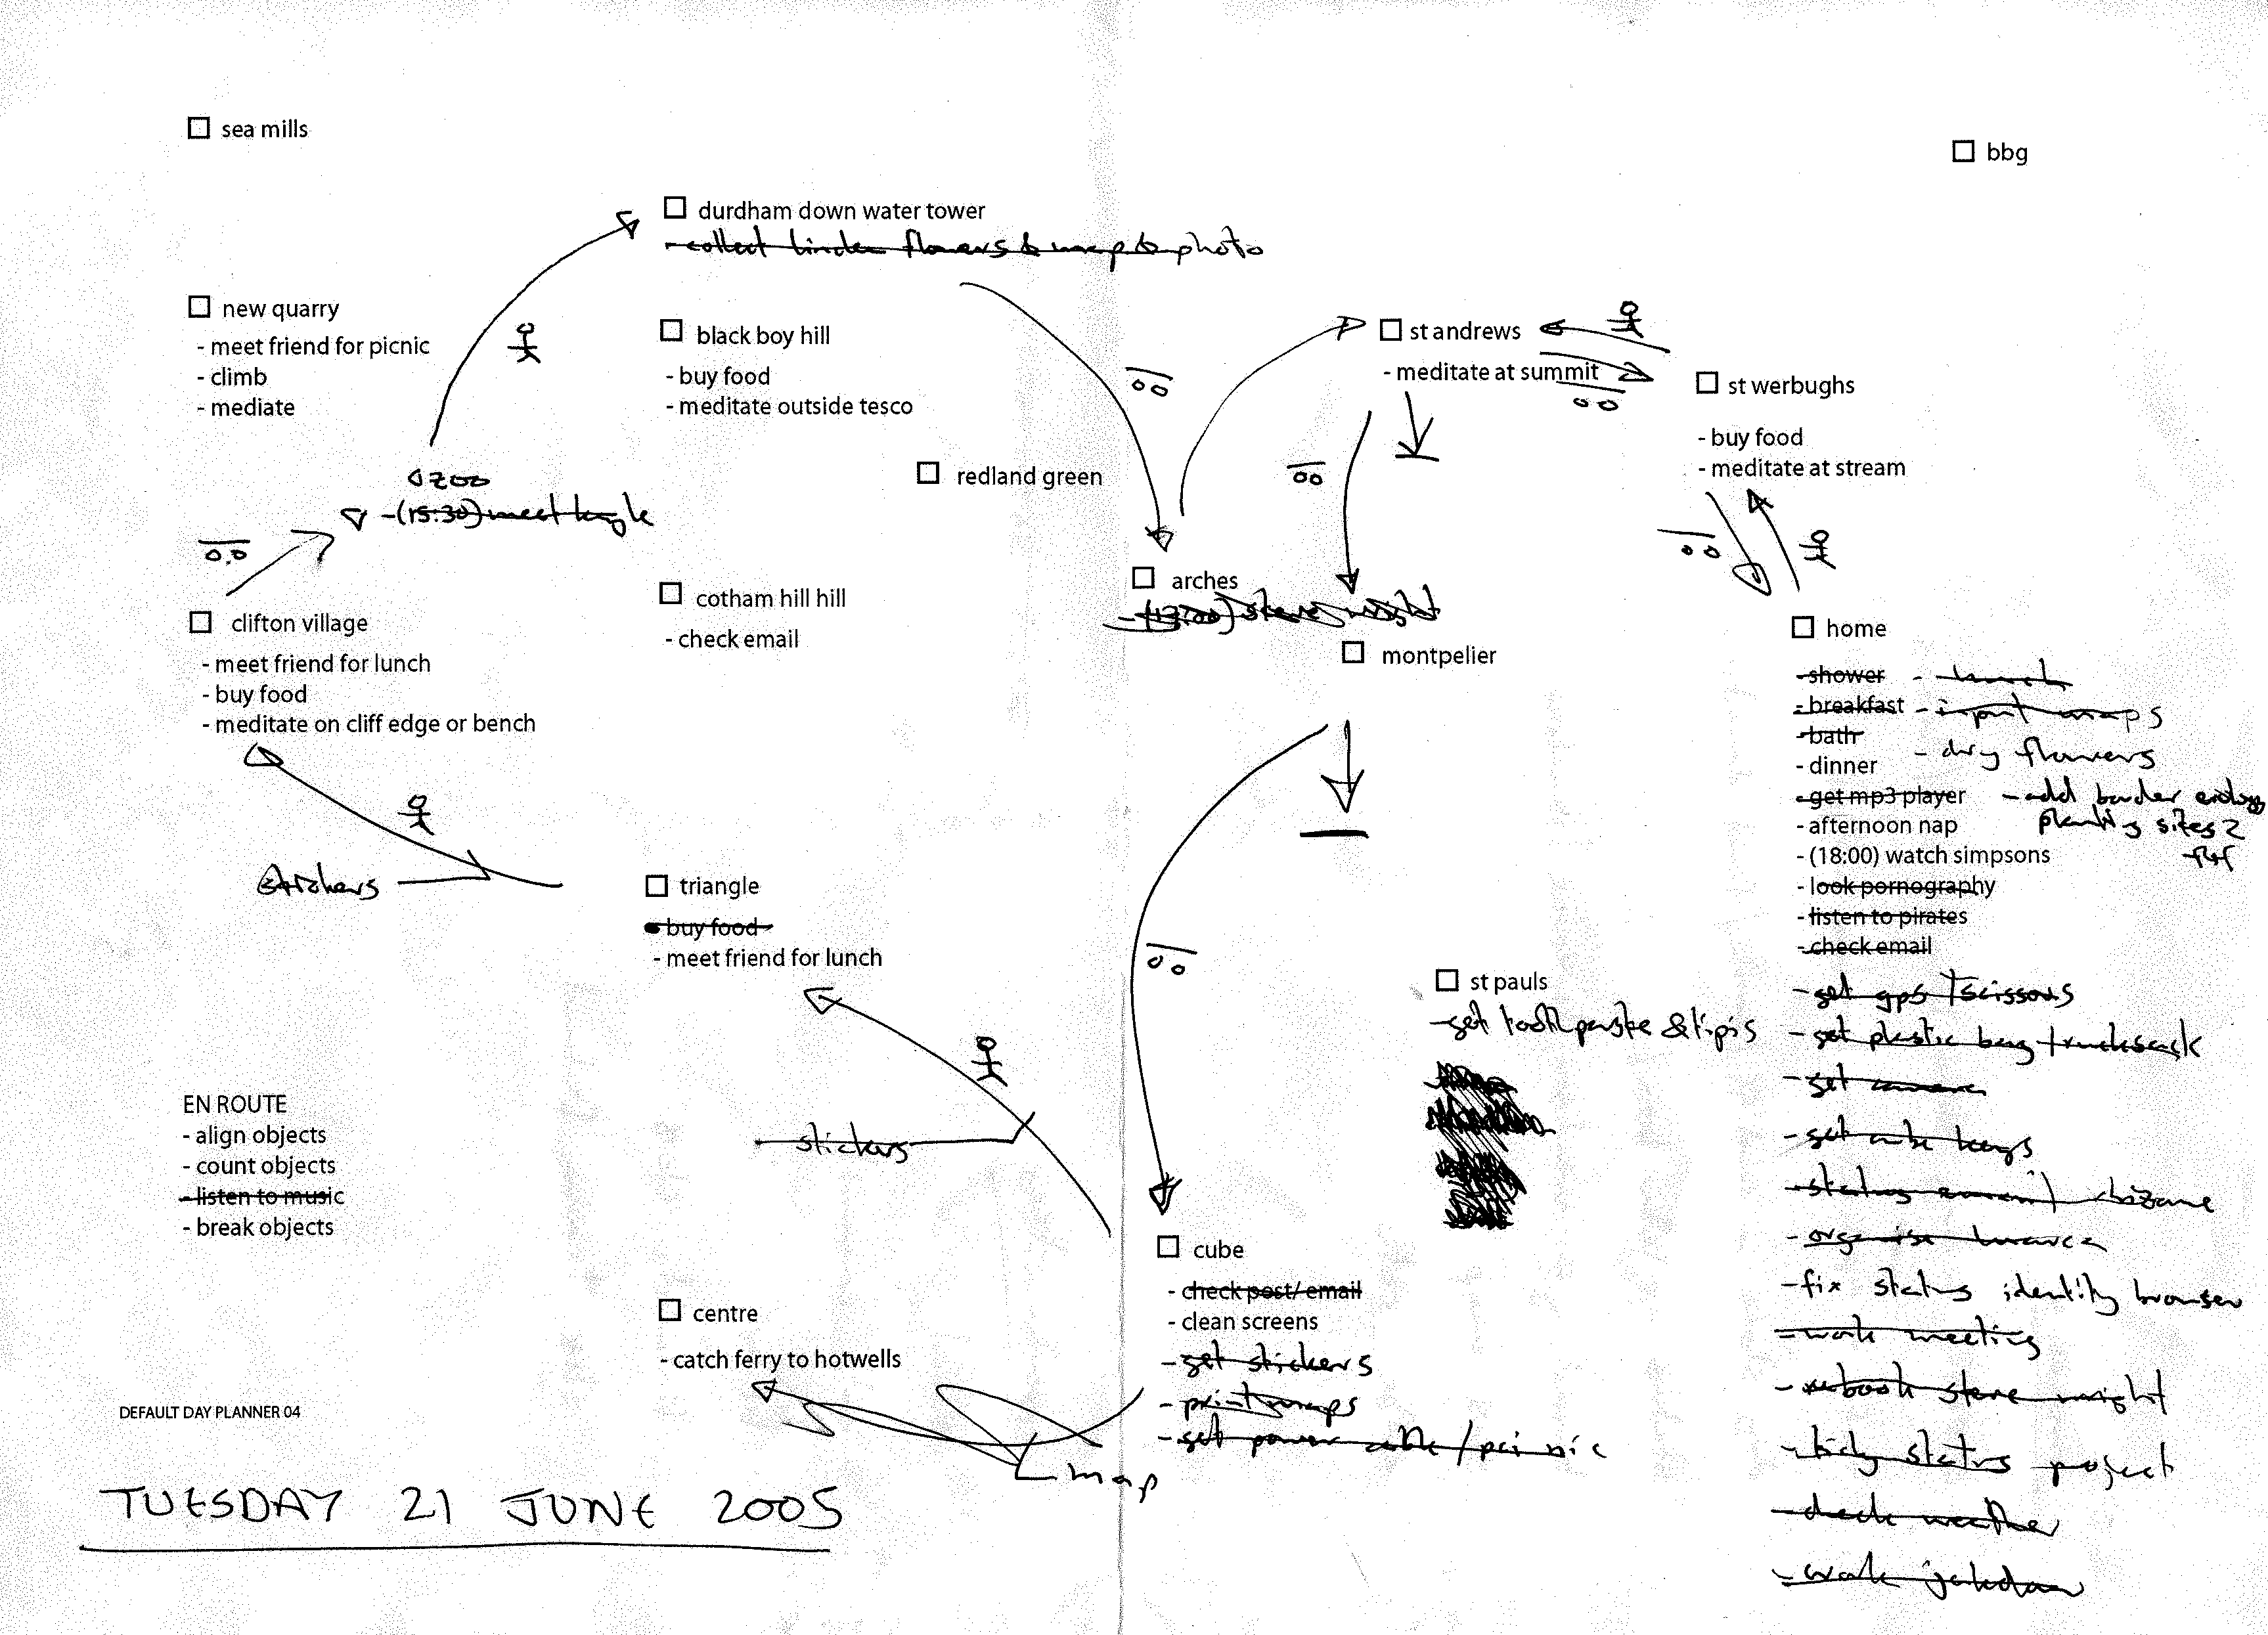 sea mills
bbg
durdham down water tower
- collect linden flowers & map & photo
new quarry
- meet friend for picnic
- climb
- mediate
black boy hill
- buy food
- meditate outside tesco
st andrews
- meditate at summit
st werbughs
- buy food
- meditate at stream
redland green
zoo
- (15:30) meet
clifton village
- meet friend for lunch
- buy food
- meditate on cliff edge or bench
cotham hill hill
- check email
arches
steve
montpelier
home
- shower
- breakfast
- bath
- dinner
- get mp3 player
- afternoon nap
- (18:00) watch simpsons
- look pornography
- listen to pirates
- check email
- lunch
- input maps
- dry flowers
- add border
planting sites 2
- get gps + scissors
- get plastic bag + rucksack
- get camera
- get cube keys
- status
- organise
- fix status identity browser
- work meeting
- rebook steve
- tidy status project
- check weather
- work
stickers
triangle
- buy food
- meet friend for lunch
stickers
st pauls
- get toothpaste &
EN ROUTE
- align objects
- count objects
- listen to music
- break objects
cube
- check post/ email
- clean screens
- get stickers
- print maps
- get power cable / pci nic
centre
- catch ferry to hotwells
map
DEFAULT DAY PLANNER 04
TUESDAY 21 JUNE 2005